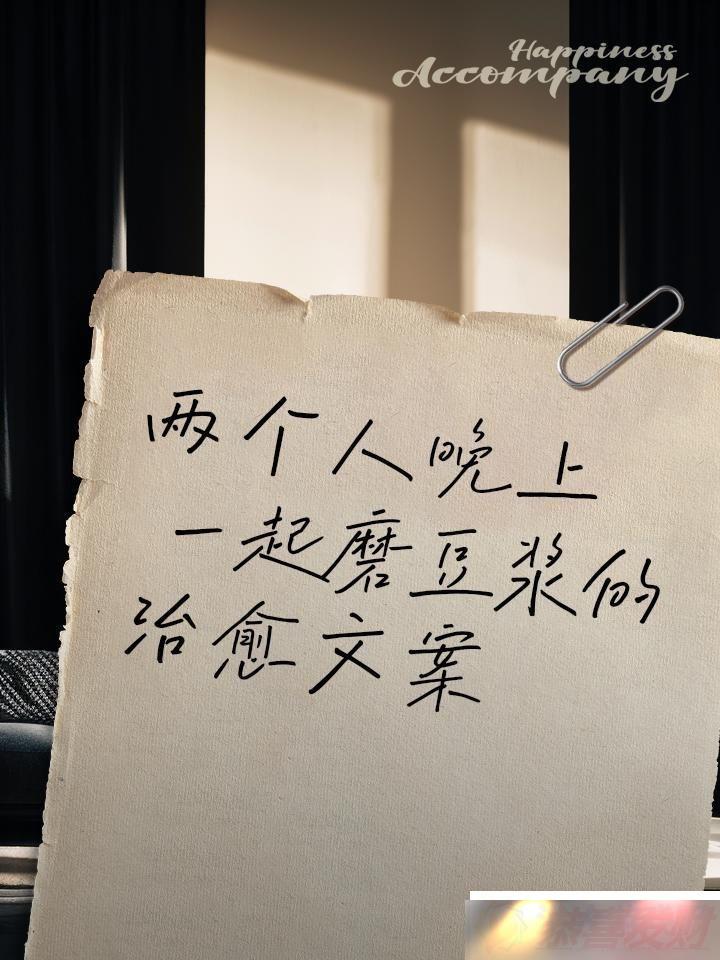 Happiness
Accompany
两个人晚上
一起磨豆浆的
治愈文案
恭喜发财